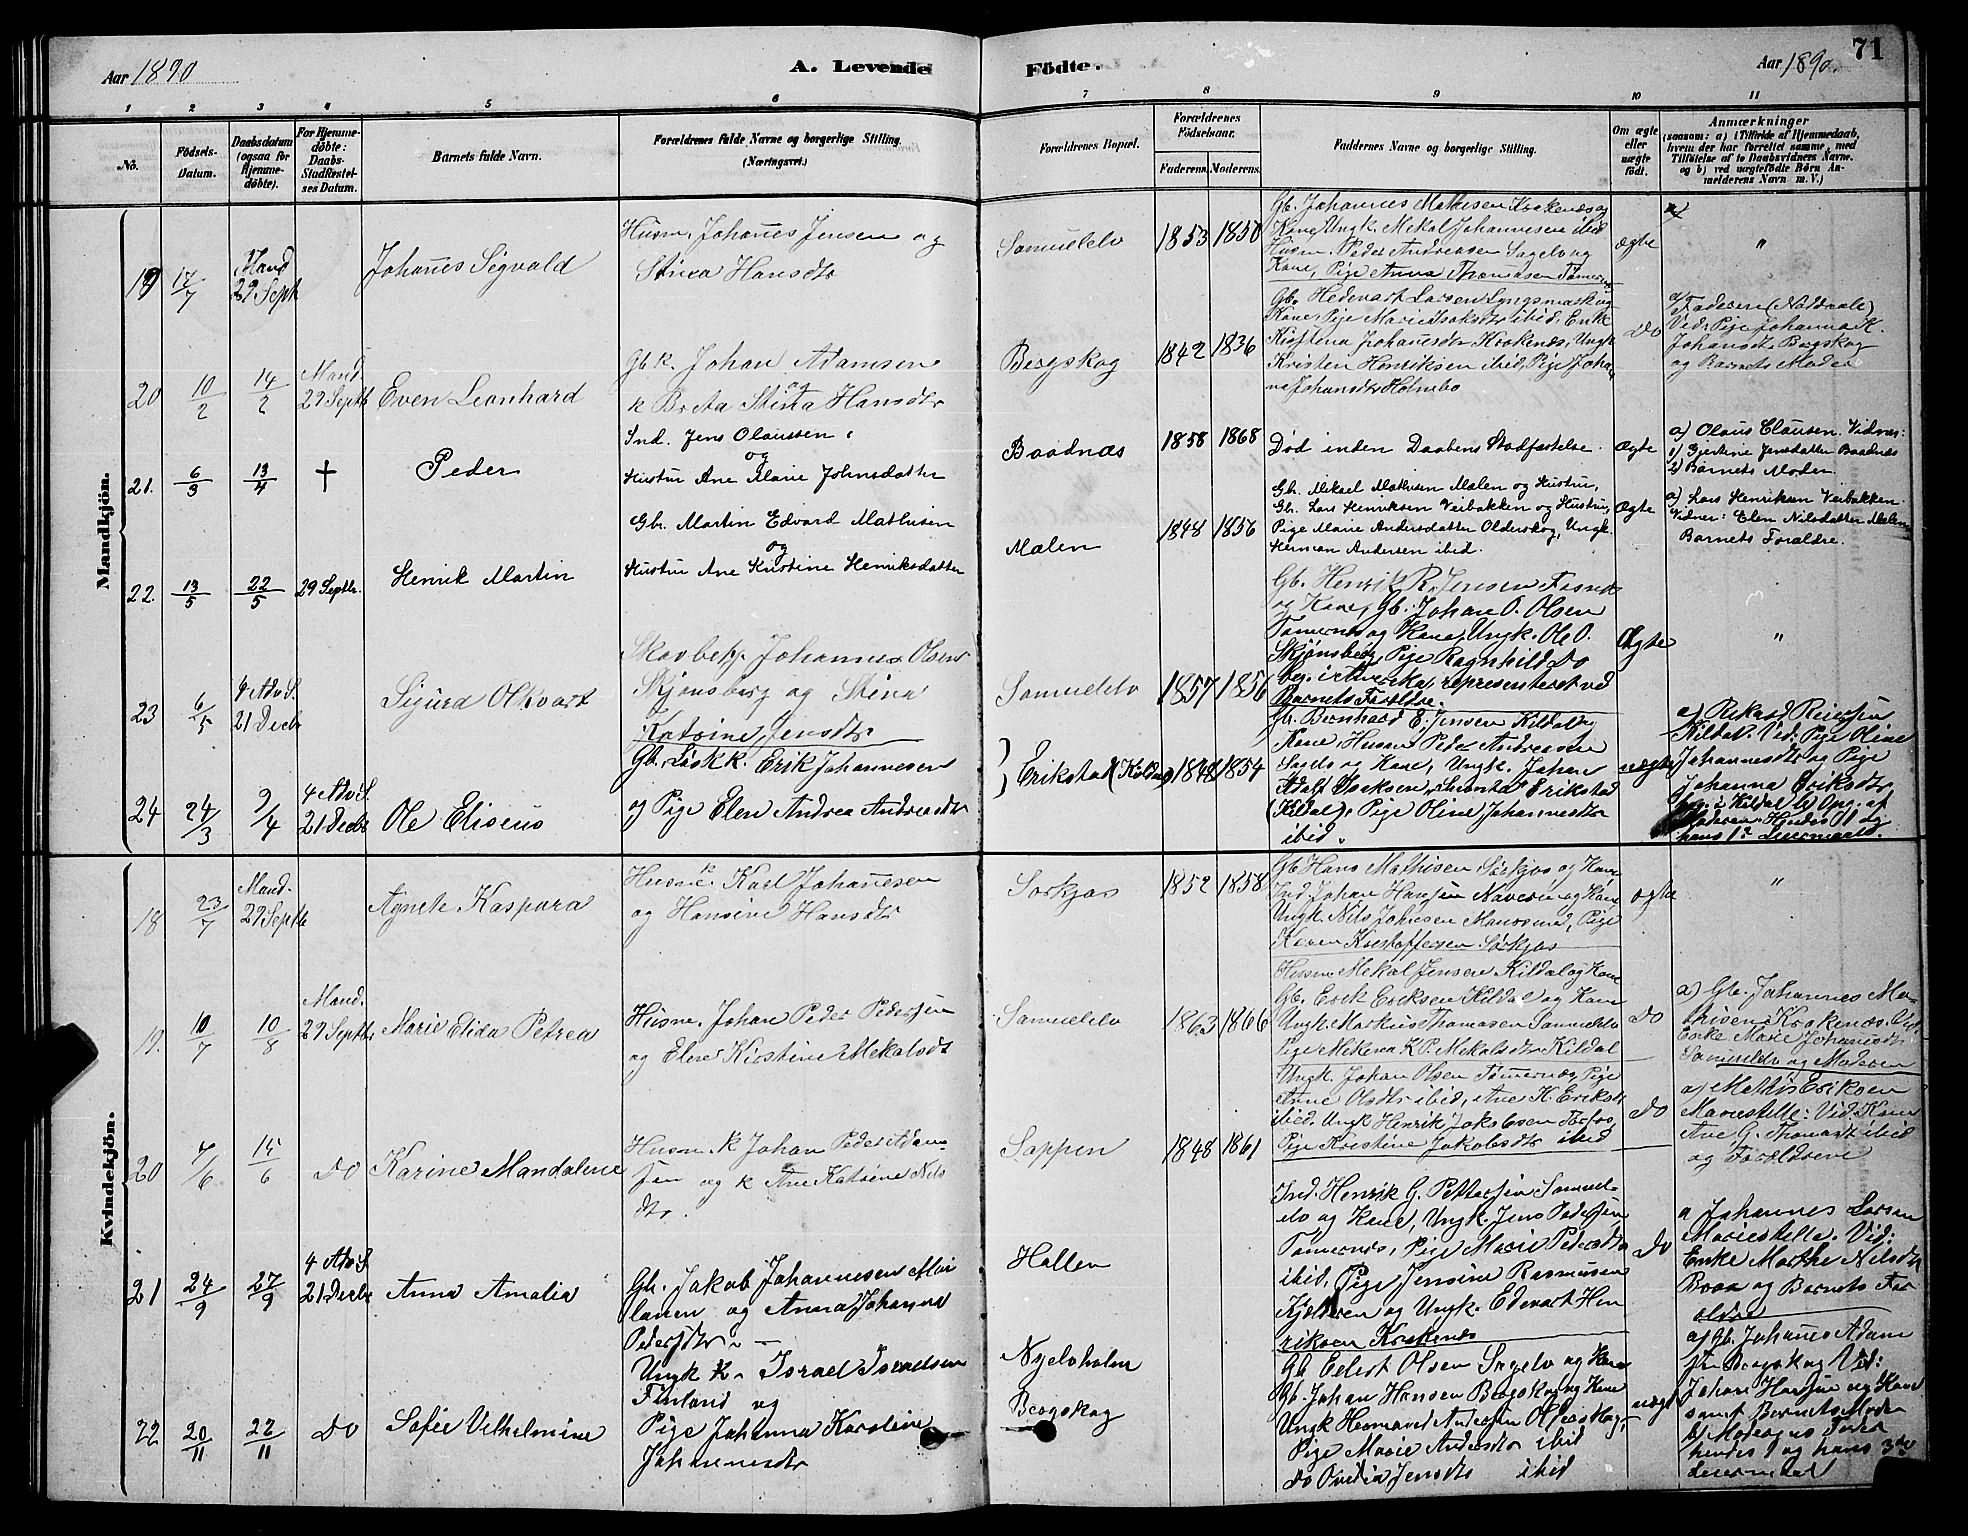 71
Aar 1890
A. Levende
Födte.
Aar 1890.
1 2 3 4 5 6 7 8 9 10 11
No.
Födsels-
Datum.
Daabsdatum
(ogsaa for
Hjemme-
döbte).
For Hjemme-
döbte:
Daabs-
Stadfæstel-
ses Datum.
Barnets fulde Navn.
Forældrenes fulde Navne og borgerlige Stilling.
(Næringsvei.)
Forældrenes Bopæl.
Forældrenes
Födselsaar.
Faderens. Moderens.
Faddernes Navne og borgerlige Stilling.
Om ægte
eller
uægte
født.
Anmærkninger
(saasom: a) i Tilfælde af Hjemmedaab,
hvem der har forrettet samme, med
Tilföielse af to Daabsvidners Navne,
og b) ved uægtefödte Børn An-
melderens Navn m. V.)
Mandkjön.
19 17/7
Mand
29 Sept
Johanes Sigvald
Husm. Johanes Jensen og
Stina Hansdtr
Samuelelv
1853 1850
Gb. Johannes Mathisen Krokenæs og
Kone, Ungk. Mekal Johannesen ibid
Husm. Peder Andreasen Sagelv og
Kone, Pige Anna Thomasen Tømernes
ægte
"
20 10/2 14/2
Mand.
29 Septb
Even Leonhard
Gbk. Johan Adamsen
og
k Breta Stina Hansdtr
Bergskog
1842 1836
Gb. Hedevart Larsen Lyngsmark og
Kone, Pige Marie Isaksdtr ibid, Enke
Kristina Johanesdtr Krokenæs, Ungk
Kristen Henriksen ibid, Pige Johan
ne Johansdtr Holmebo
Do
a/ Faderen
Vid: Pige Johanna K.
Johansdtr Bergskog
og Barnets Moder
21. 6/3 13/4 †
Peder
Ind. Jens Olaussen
og
Hustru Ane Marie Johnsdatter
Baadnæs
1858 1868
Død inden Daabens Stadfæstelse.
Ægte
a) Olaus Clausen. Vidner:
1) Gjertine Jensdatter Baadnæs
2) Barnets Moder.
22. 13/5 22/5 29 Septbr.
Henrik Martin
Gbr. Martin Edvard Mathisen
og
Hustru Ane Kristine Henriksdatter
Mælen
1848 1856
Gb. Mikael Mathisen Mælen og Hustru,
Gb. Lars Henriksen Veibakken og Hustru,
Pige Marie Andersdatter Olderskog, Ungk.
Herman Andersen ibid.
Ægte
a) Lars Henriksen Veibakken.
Vidner: Elen Nilsdatter Mælen
Barnets Forældre.
23 6/5
4 Adv S.
21 Decbr
Sigurd Olkvart
Johannes Olsen
Skjønsberg og Stina
Katrine Jensdtr
Samuelelv
1857 1856
Gb. Henrik R. Jensen
og Kone, Gb. Johan O. Olsen
Tømernes og Kone, Ungk. Ole O.
Skjønsberg, Pige Ragnhild Do
beg. i Amerika, representeret ved
Barnets Forældre.
Ægte
"
24 24/3 9/4
4 Adv S.
21 Decbr
Ole Eliseus
Gb. Erik Johannesen
og Pige Elen Andrea Andreasdtr
Erikstad (Kildal)
1848 1854
Gb. Bernhard E. Jensen Kildal og
Kone, Husm Peder Andreasen
og Kone, Ungk. Johan
Adolf Isaksen, Erikstad
(Kildal), Pige Oline Johannesdtr
ibid.
uægte
a) Rikard Reiersen
Kildal. Vid: Pige Oline
Johannesdtr og Pige
Johanna Eriksdtr
beg. i Kildal b) Opg. af
Moderen. Hendes 1 og
hans 1ste Leiermaal.
Kvindekjön.
18 23/7
Mand.
29 Septb
Agnete Kaspara
Husm. Karl Johanesen
og Hansine Hansdtr
Sørkjos
1852 1858
Gb Hans Mathisen Sørkjos og Kone
Ind. Johan Hansen og Kone
Ungk. Nils Johnsen, Pige
Karen Kristoffersen Sørkjos
ægte
"
19. 10/7 10/8
Mand.
29 Septbr
Marie Elida Petrea
Husm. Johan Peder Pedersen
og Elen Kirstine Mekalsdtr
Samuelelv
1863 1866
Husm Mekal Jensen Kildal og Kone
Gb. Erik Eriksen Kildal og Kone
Ungk. Markus Thomasen Samuelelv
Pige Mikema K P. Mekalsdtr Kildal
Do
a) Gb. Johannes Ma-
thisen Krokenæs. Vid
Enke Marie Johanesdtr
Samuelelv og Moderen
20 7/6 15/6 Do
Karine Mandalene
Husm. k Johan Peder Adam-
sen og k Ane Katrine Nils
dtr.
Sappen
1848 1861
Ungk. Johan Olsen Tømernes, Pige
Anne Olsdtr ibid, Ane K. Eriksdtr
ibid. Ungk Henrik Jakobsen
Pige Kristine Jakobsdtr ibid
Do
a) Mathis Eriksen
Mariestelle: Vid: Kone
Ane G. Thomasdt ibid
og Forældrene
21 24/9 27/9
4 Adv S.
21 Decbr
Anna Amalia
Gb. Jakob Johannesen Moi
lanen og Anna Johanna
Pedersdtr.
Hallen
Ind. Henrik G. Pettersen Samuel-
elv og Kone, Ungk. Jens Pedersen
Tømernes, Pige Marie Pedersdtr
ibid, Pige Jensine Rasmusen
Kjelleren og Ungk. Edevart Hen
riksen Krokenæs
Do
a Johannes Larsen
Mariestelle. Vid:
Enke Marthe Nilsdtr
og Barnets For
ældre
22 20/11 22/11 Do
Sofie Vilhelmine
Ungk k. Israel Israelsen
Finland og
Pige Johanna Karoline
Johannesdtr
Nyelvholm
Bergskog
Gb Edevart Olsen Sagelv og Kone
Gb. Johan Hansen Bergskog og Kone
Ungk Andersen Olderskog,
Pige Marie Andersdtr ibid
Do Ovidia Jensdtr ibid
uægte
a/ Gb. Johanes Adam
sen Bergskog Vid:
Johan Hansen og Kone
samt Barnets Moder
b/ Moderens Fader
hendes 1 og hans 3die
Leiermaal